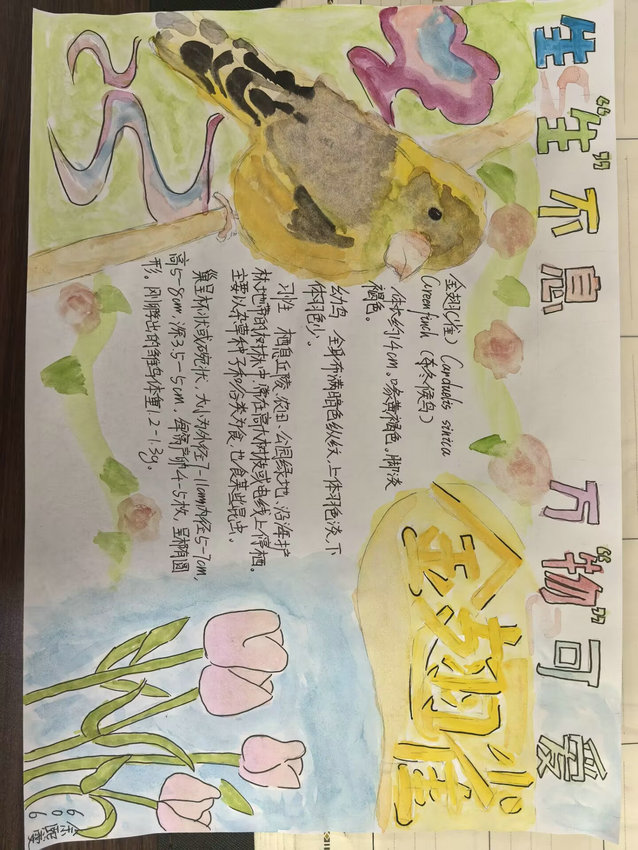 生“生”不息 万“物”可爱
金翅(雀) Carduelis sinica
Greenfinch (冬候鸟)
体长约14cm。喙黄褐色。脚淡
褐色。
幼鸟 全身布满暗色纵纹,上体羽色淡,下
体羽色少。
习性 栖息丘陵、农田、公园绿地、沿海护
林地带的树林中,常在高大树枝或电线上停栖。
主要以杂草种子和谷类为食,也食某些昆虫。
巢呈杯状或碗状,大小为外径7-11cm内径5-7cm,
高5-8cm,深3.5-5cm,每窝产卵4-5枚,呈椭圆
形。刚孵出的雏鸟体重1.2-1.3g。
金翅雀
606